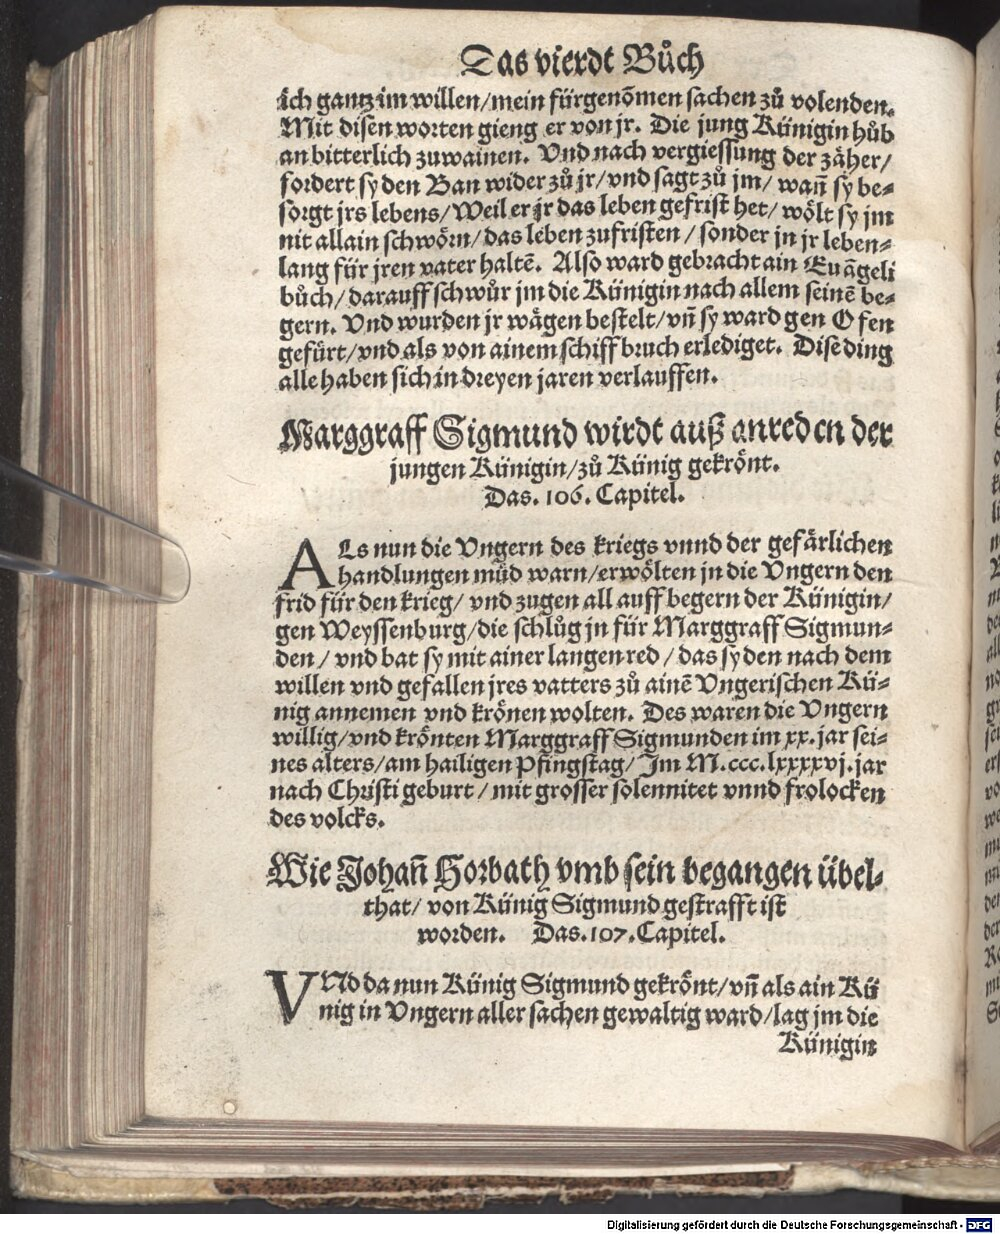 Das vierdt Bůch
ich gantz im willen/mein fürgenõmen sachen zů volenden.
Mit disen worten gieng er von jr. Die jung Künigin hůb
an bitterlich zuwainen. Vnd nach vergiessung der zäher/
fordert sy den Ban wider zů jr/vnd sagt zů jm/wañ sy be⸗
sorgt jrs lebens/Weil er jr das leben gefrist het/wölt sy jm
nit allain schwörn/das leben zufristen/sonder jn jr leben⸗
lang für jren vater haltẽ. Also ward gebracht ain Euãgeli
bůch/darauff schwůr jm die Künigin nach allem seinẽ be⸗
gern. Vnd wurden jr wägen bestelt/vñ sy ward gen Ofen
gefürt/vnd als von ainem schiffbruch erlediget. Dise ding
alle haben sich in dreyen jaren verlauffen.
Marggraff Sigmund wirdt auß anreden der
jungen Künigin/zů Künig gekrönt.
Das. 106. Capitel.
ALs nun die Vngern des kriegs vnnd der gefärlichen
handlungen můd warn/erwölten jn die Vngern den
frid für den krieg/vnd zugen all auff begern der Künigin/
gen Weyssenburg/die schlůg jn für Marggraff Sigmun⸗
den/vnd bat sy mit ainer langen red/das sy den nach dem
willen vnd gefallen jres vatters zů ainẽ Vngerischen Kü⸗
nig annemen vnd krönen wolten. Des waren die Vngern
willig/vnd krönten Marggraff Sigmunden im xx. jar sei⸗
nes alters/am hailigen Pfingstag/Im M.ccc.lxxxxvj. jar
nach Christi geburt/mit grosser solennitet vnnd frolocken
des volcks.
Wie Johañ Horbath vmb sein begangen übel⸗
that/von Künig Sigmund gestrafft ist
worden. Das. 107. Capitel.
VNd da nun Künig Sigmund gekrönt/vñ als ain Kü
nig in Vngern aller sachen gewaltig ward/lag jm die
Künigin
Digitalisierung gefördert durch die Deutsche Forschungsgemeinschaft - DFG